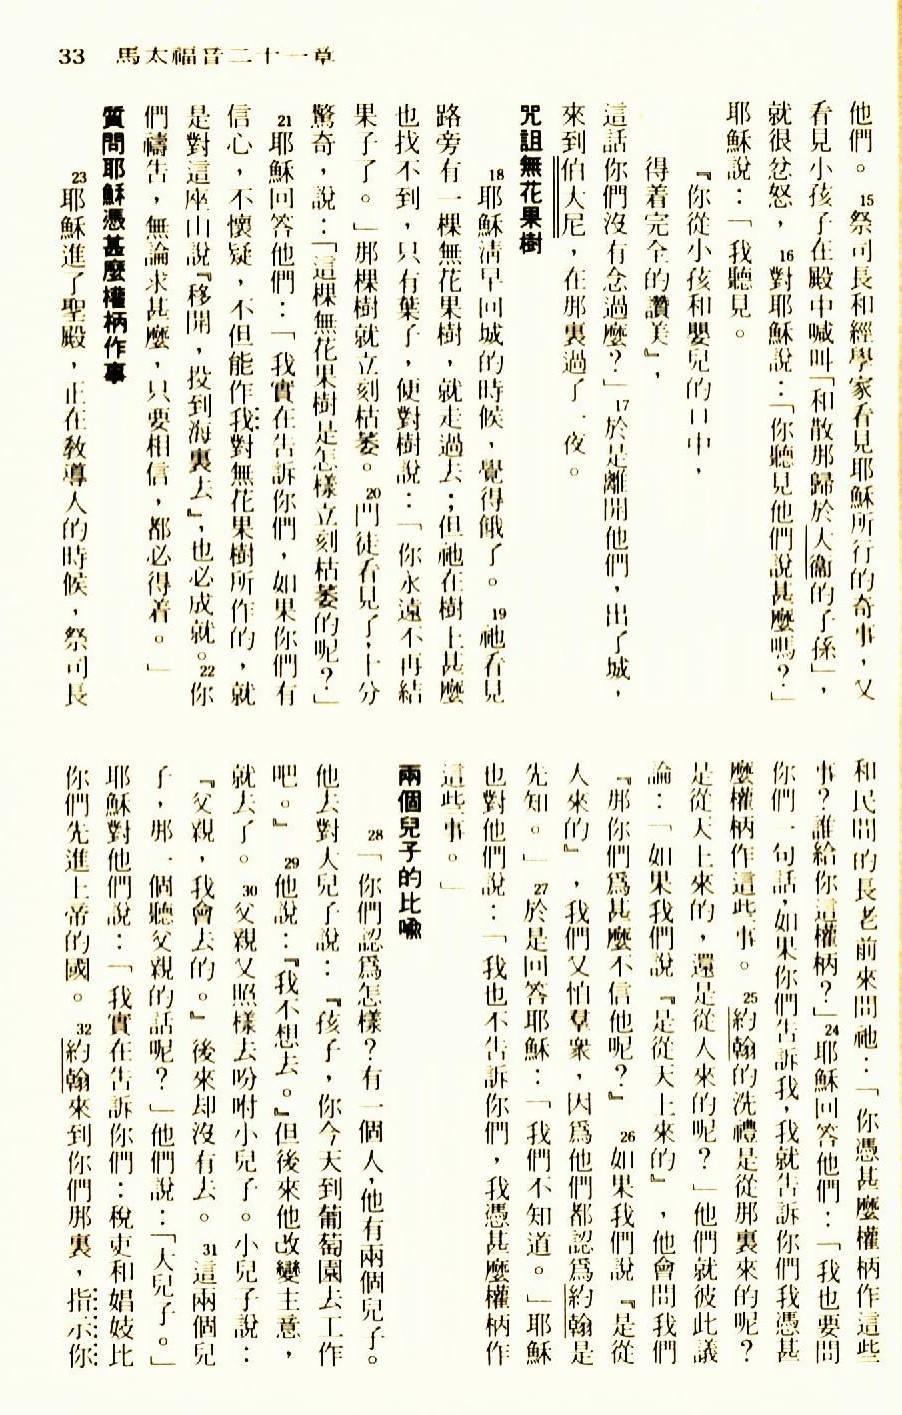 33　馬太福音二十一章
他們。15祭司長和經學家看見耶穌所行的奇事，又
看見小孩子在殿中喊叫「和散那歸於大衞的子孫」，
就很忿怒，16對耶穌說：「你聽見他們說甚麼嗎？」
耶穌說：「我聽見。
『你從小孩和嬰兒的口中，
得着完全的讚美』，
這話你們沒有念過麼？」17於是離開他們，出了城，
來到伯大尼，在那裏過了一夜。
咒詛無花果樹
18耶穌淸早回城的時候，覺得餓了。19祂看見
路旁有一棵無花果樹，就走過去；但祂在樹上甚麼
也找不到，只有葉子，便對樹說：「你永遠不再結
果子了。」那棵樹就立刻枯萎。20門徒看見了，十分
驚奇，說：「這棵無花果樹是怎樣立刻枯萎的呢？」
21耶穌回答他們：「我實在告訴你們，如果你們有
信心，不懷疑，不但能作我對無花果樹所作的，就
是對這座山說『移開，投到海裏去』，也必成就。22你
們禱告，無論求甚麼，只要相信，都必得着。」
質問耶穌憑甚麼權柄作事
23耶穌進了聖殿，正在敎導人的時候，祭司長
和民間的長老前來問祂：「你憑甚麼權柄作這些
事？誰給你這權柄？」24耶穌回答他們：「我也要問
你們一句話，如果你們告訴我，我就告訴你們我憑甚
麼權柄作這些事。25約翰的洗禮是從那裏來的呢？
是從天上來的，還是從人來的呢？」他們就彼此議
論：「如果我們說『是從天上來的』，他會問我們
『那你們爲甚麼不信他呢？』26如果我們說『是從
人來的』，我們又怕羣衆，因爲他們都認爲約翰是
先知。」27於是回答耶穌：「我們不知道。」耶穌
也對他們說：「我也不告訴你們，我憑甚麼權柄作
這些事。」
兩個兒子的比喩
28「你們認爲怎樣？有一個人，他有兩個兒子。
他去對大兒子說：『孩子，你今天到葡萄園去工作
吧。』29他說：『我不想去。』但後來他改變主意，
就去了。30父親又照樣去吩咐小兒子。小兒子說：
『父親，我會去的。』後來却沒有去。31這兩個兒
子，那一個聽父親的話呢？」他們說：「大兒子。」
耶穌對他們說：「我實在告訴你們：稅吏和娼妓比
你們先進上帝的國。32約翰來到你們那裏，指示你